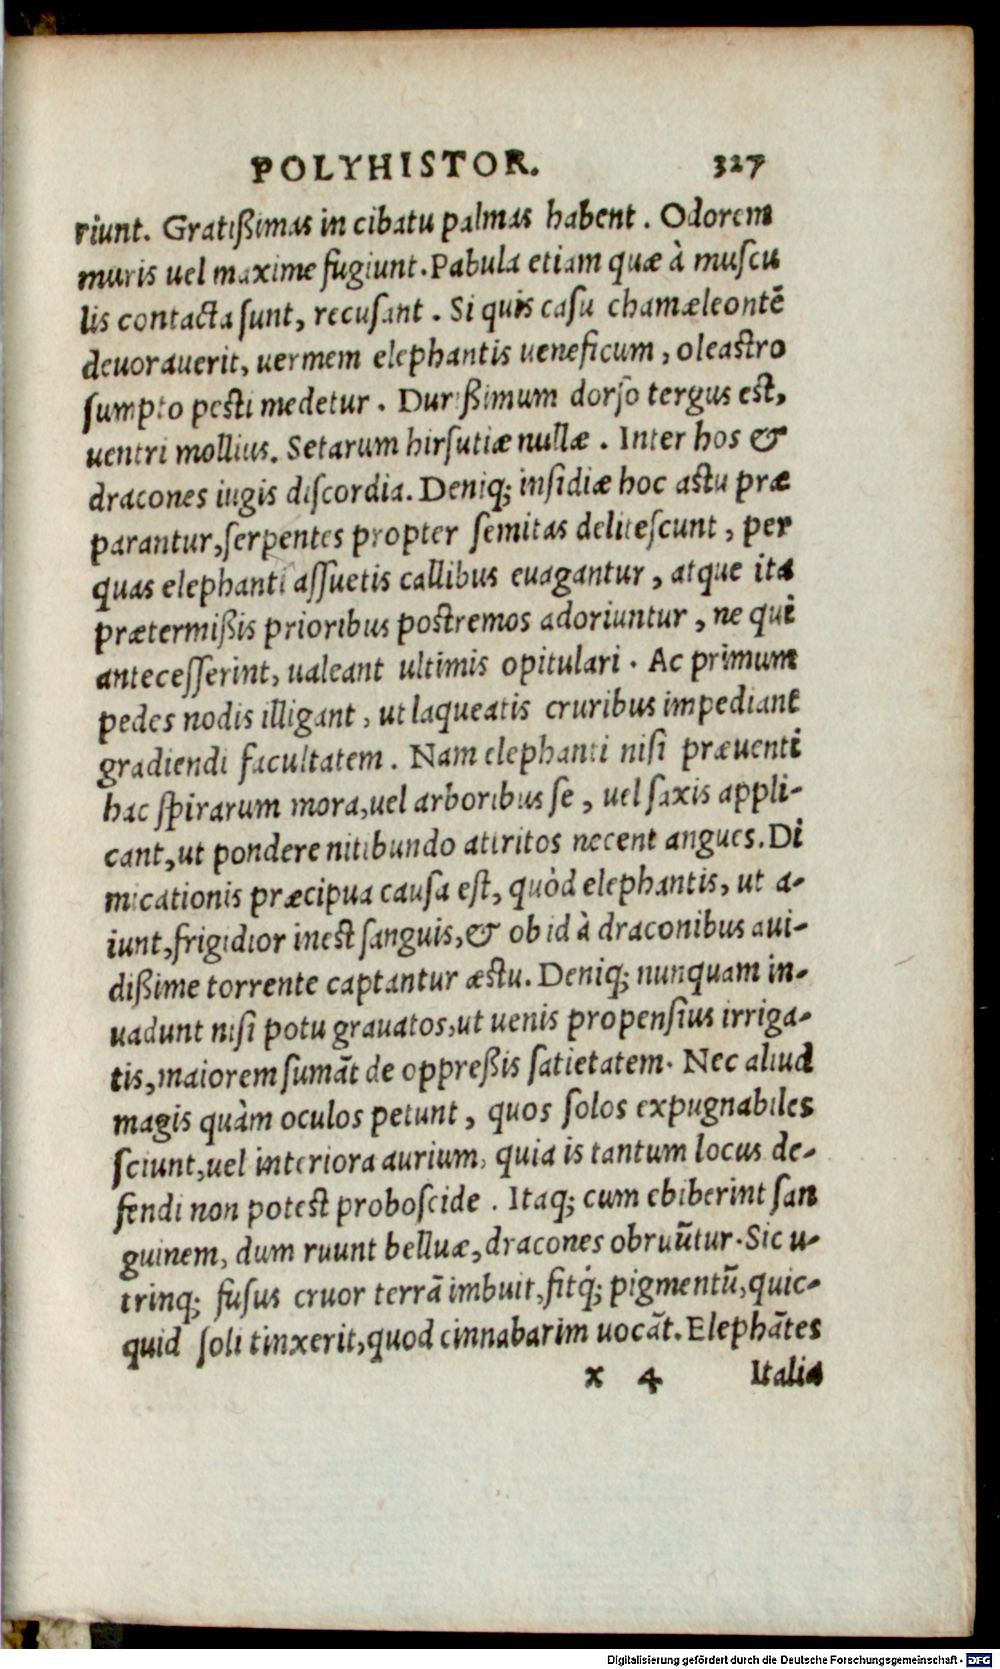 POLYHISTOR. 327
riunt. Gratißimas in cibatu palmas habent. Odorem
muris uel maxime fugiunt. Pabula etiam quæ à muſcu
lis contacta ſunt, recuſant. Si quis caſu chamæleontē
deuorauerit, uermem elephantis ueneficum, oleaſtro
ſumpto peſti medetur. Durißimum dorſo tergus eſt,
uentri mollius. Setarum hirſutiæ nullæ. Inter hos &
dracones iugis diſcordia. Deniq; inſidiæ hoc aſtu præ
parantur, ſerpentes propter ſemitas deliteſcunt, per
quas elephanti aſſuetis callibus euagantur, atque ita
prætermißis prioribus poſtremos adoriuntur, ne qui
anteceſſerint, ualeant ultimis opitulari. Ac primum
pedes nodis illigant, ut laqueatis cruribus impediant
gradiendi facultatem. Nam elephanti niſi præuenti
hac ſpirarum mora, uel arboribus ſe, uel ſaxis appli-
cant, ut pondere nitibundo attritos necent angues. Di
micationis præcipua cauſa eſt, quòd elephantis, ut a-
iunt, frigidior ineſt ſanguis, & ob id à draconibus aui-
dißime torrente captantur æſtu. Deniq; nunquam in-
uadunt niſi potu grauatos, ut uenis propenſius irriga-
tis, maiorem ſumãt de oppreßis ſatietatem. Nec aliud
magis quàm oculos petunt, quos ſolos expugnabiles
ſciunt, uel interiora aurium, quia is tantum locus de-
fendi non poteſt proboſcide. Itaq; cum ebiberint ſan
guinem, dum ruunt belluæ, dracones obruũtur. Sic u-
trinq; fuſus cruor terrã imbuit, fitq́; pigmentũ, quic-
quid ſoli tinxerit, quod cinnabarim uocãt. Elephãtes
x 4 Italia
Digitalisierung gefördert durch die Deutsche Forschungsgemeinschaft - DFG